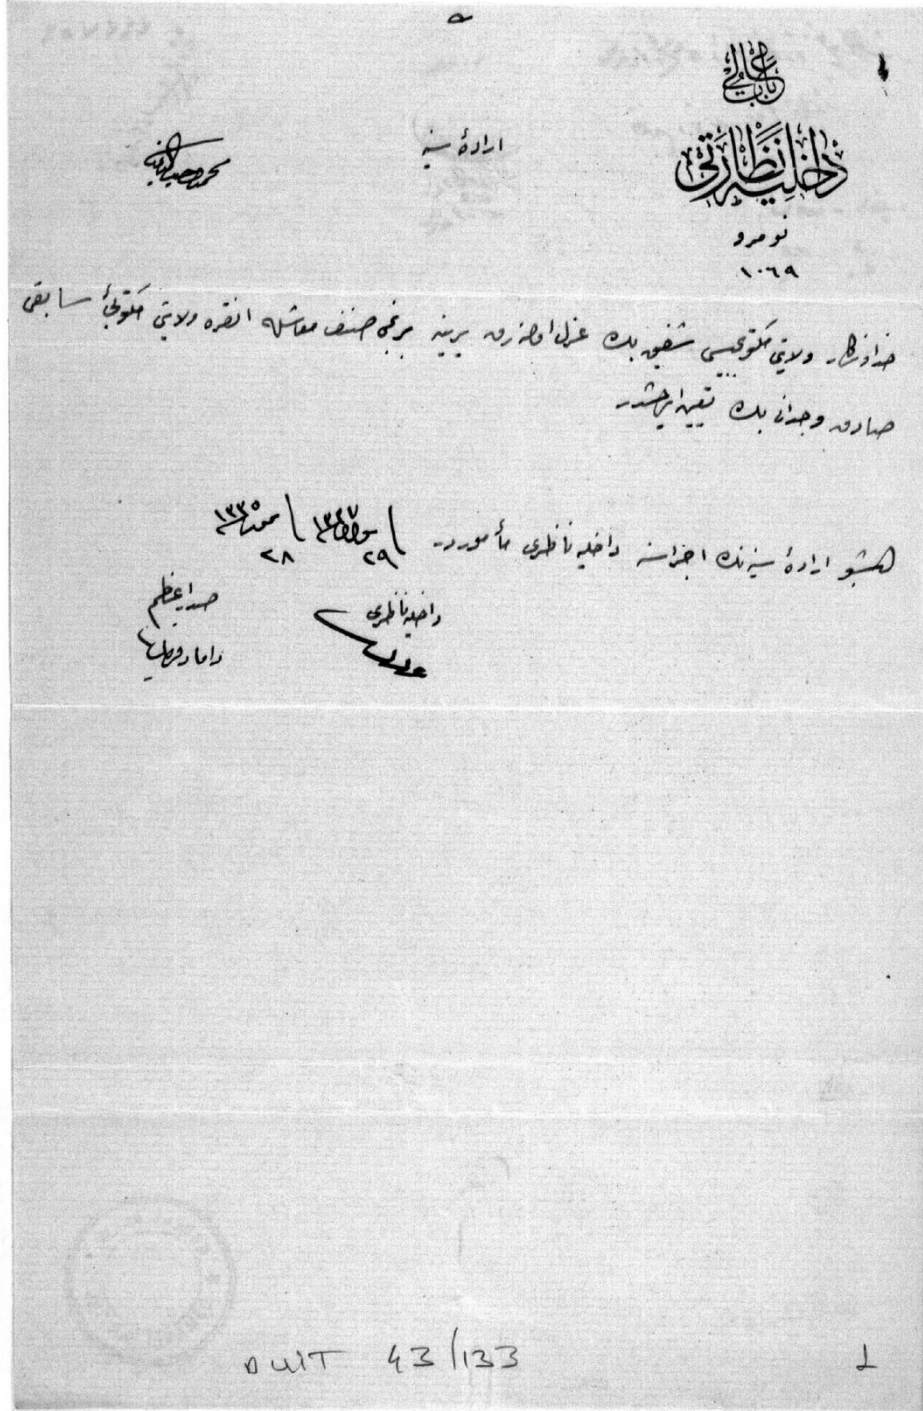 باب عالی
داخلیه نظارتی
نومرو
١٠٦٩
ارادۀ سنیه
محمد وحیدالدین
خداوندکار ولایتی مکتوبجیسی شفیق بك عزل اولنه‌رق یرینه برنجی صنف معاشله انقره ولایتی مکتوبجئ سابقی
صادق وجدانی بك تعیین ایدلمشدر
اشبو ارادۀ سنیه‌نك اجراسنه داخلیه ناظری مأموردر
٢٩ ١٣٣٧ ٢٨ ١٣٣٥
داخلیه ناظری
صدراعظم
داماد فرید
DUIT 43/133
1